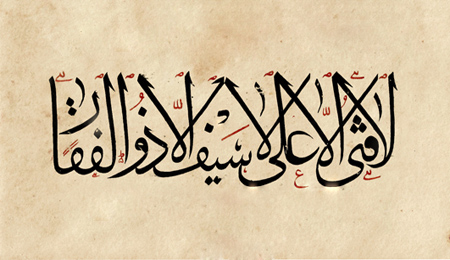 لا فتى الا علي لا سيف الا ذو الفقار